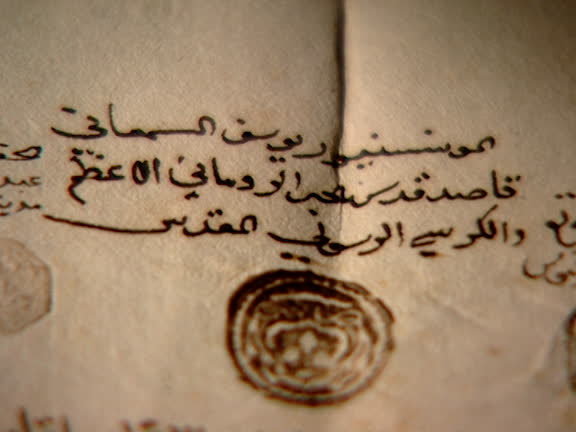 المونسنيور يوسف السمعاني
قاصد قدس الحبر الروماني الاعظم
والكرسي الرسولي المقدس